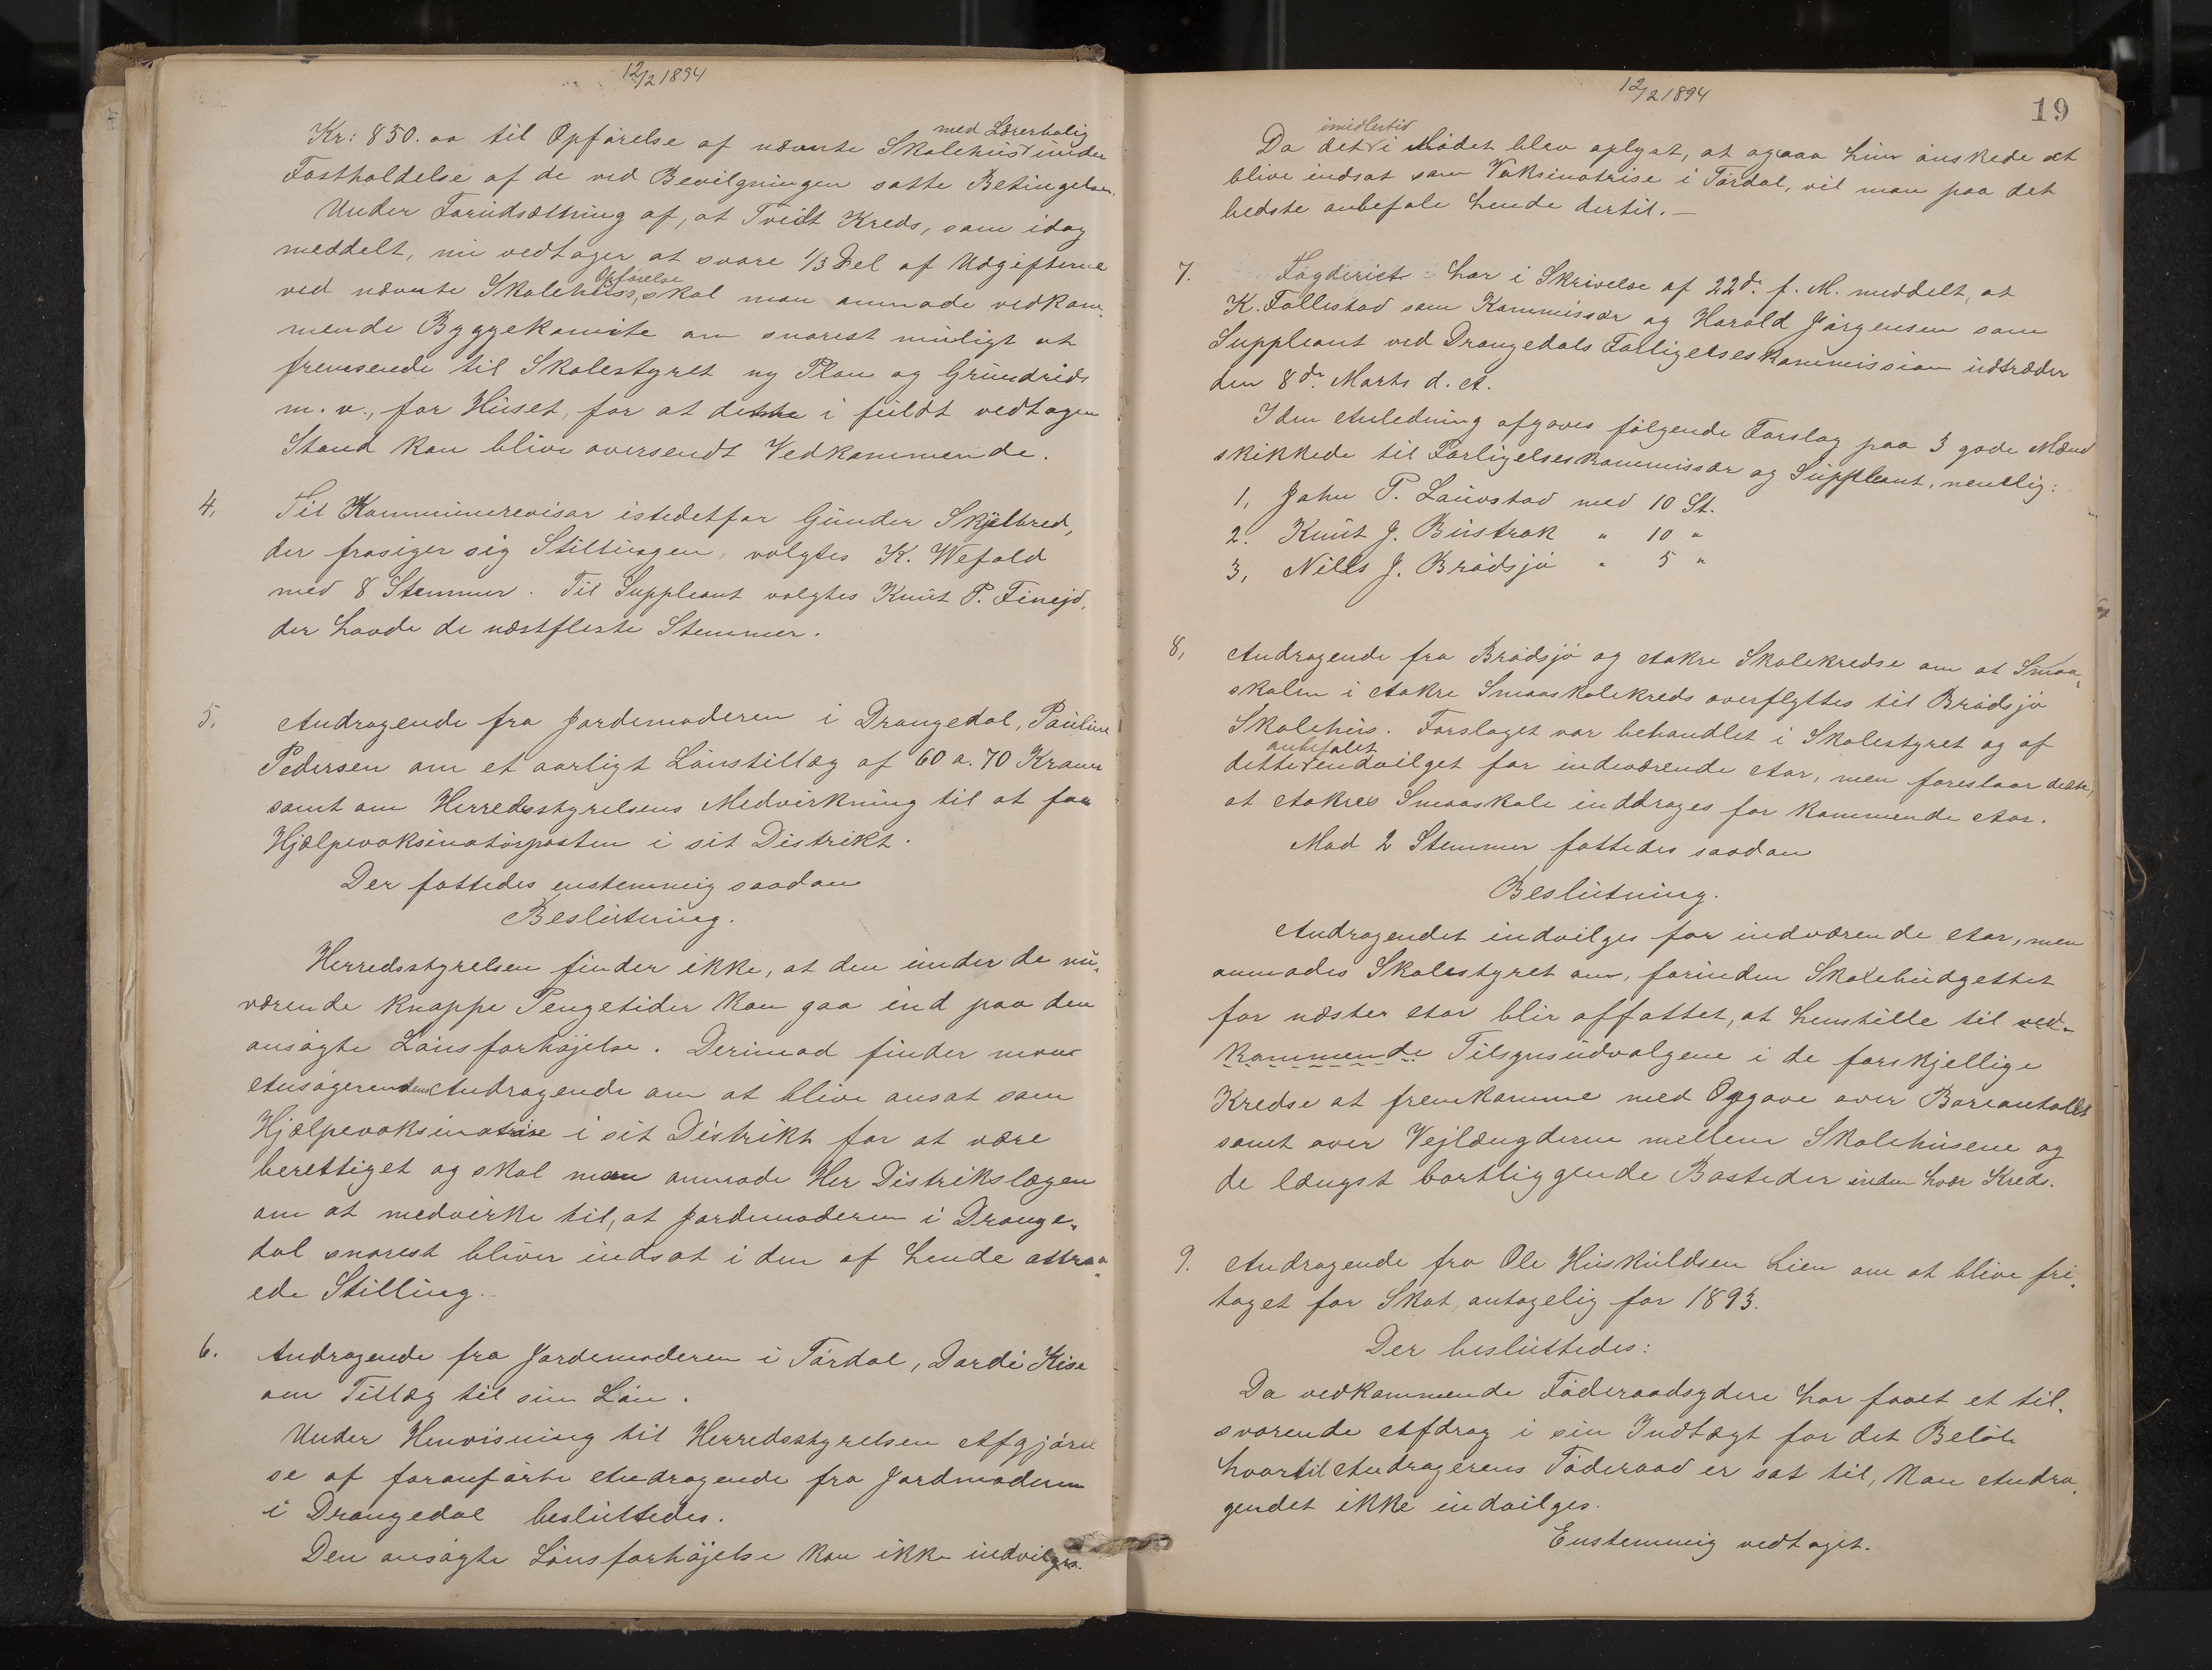 12/2 1894
med Lærerbolig
Kr: 850.00 til Opførelse af nævnte Skolehus under
Fastholdelse af de ved Bevilgningen satte Betingelser.
Under Forudsætning af, at Tveidt Kreds, som idag
meddelt, nu vedtager at svare 1/3 Del af Udgifterne
Opførelse
ved nævnte Skolehuss, skal man anmode vedkom-
mende Byggekomite om snarest muligt at
fremsende til Skolestyret ny Plan og Grundrids
m. v., for Huset, for at dette i fuldt vedtagen
Stand kan blive oversendt Vedkommende.
4, Til Kommunerevisor istedetfor Gunder Skjelbred,
der frasiger sig Stillingen, valgtes K. Wefald
med 8 Stemmer. Til Suppleant valgtes Knut P.
der havde de næstfleste Stemmer.
5. Andragende fra Jordemoderen i Drangedal, Pauline
Pedersen om et aarligt Lønstillæg af 60 a. 70 Kroner
samt om Herredsstyrelsens Medvirkning til at faa
Hjælpevaksinatørposten i sit Distrikt.
Der fattedes enstemmig saadan
Beslutning.
Herredsstyrelsen finder ikke, at den under de nu-
værende knappe Pengetider kan gaa ind paa den
ansøgte Lønsforhøjelse. Derimod finder man
Ansøgerendens Andragende om at blive ansat som
Hjælpevaksinatrise i sit Distrikt for at være
berettiget og skal man anmode Her Distrikslægen
om at medvirke til, at Jordemoderen i Drange-
dal snarest bliver indsat i den af hende attraa-
ede Stilling.
6. Andragende fra Jordemoderen i Tørdal, Dordi Kise
om Tillæg til sin Løn.
Under Henvisning til Herredsstyrelsen Afgjørel
se af foranførte Andragende fra Jordmoderen
i Drangedal besluttedes.
Den ansøgte Lønsforhøjelse kan ikke indvilges.
12/2 1894
19
imidlertid
Da det i Mødet blev oplyst, at ogsaa hun ønskede at
blive indsat som Vaksinatrise i Tørdal, vil man paa det
bedste anbefale hende dertil.—
7. Fogderiet har i Skrivelse af 22de f. M. meddelt, at
K. Follestad som Kommissær og Harald Jørgensen som
Suppleant ved Drangedals Forligelseskommission udtræder
den 8de Marts d. A.
I den Anledning afgaves følgende Forslag paa 3 gode Mænd
skikkede til Forligelseskommissær og Suppleant, nemlig:
1, John P. Lauvstad med 10 St.
2. Knut J. Bustrak " 10 "
3, Nills J. Brødsjø " 5 "
8, Andragende fra Brødsjø og Aakre Skolekredse om at Smaa-
skolen i Aakre Smaaskolekreds overflyttes til Brødsjø
Skolehus. Forslaget var behandlet i Skolestyret og af
anbefalet
dette indvilget for indeværende Aar, men foreslaar dette,
at Aakres Smaaskole inddrages for kommende Aar.
Mod 2 Stemmer fattedes saadan
Beslutning.
Andragendet indvilges for indværende Aar, men
anmodes Skolestyret om, forinden Skolebudgettet
for næste Aar blir affattet, at henstille til ved-
kommende Tilsynsudvalgene i de forskjellige
Kredse at fremkomme med Opgave over Barneantallet
samt over Vejlængderne mellem Skolehusene og
de længst bortliggende Bosteder inden hver Kreds.
9. Andragende fra Ole Huskuldsen Lien om at blive fri-
taget for Skat, antagelig for 1893.
Der besluttedes:
Da vedkommende Føderaadsydere har faaet et til-
svarende Afdrag i sin Indtægt for det Beløb
hvortil Andragerens Føderaad er sat til, kan Andra-
gendet ikke indvilges.
Enstemmig vedtaget.